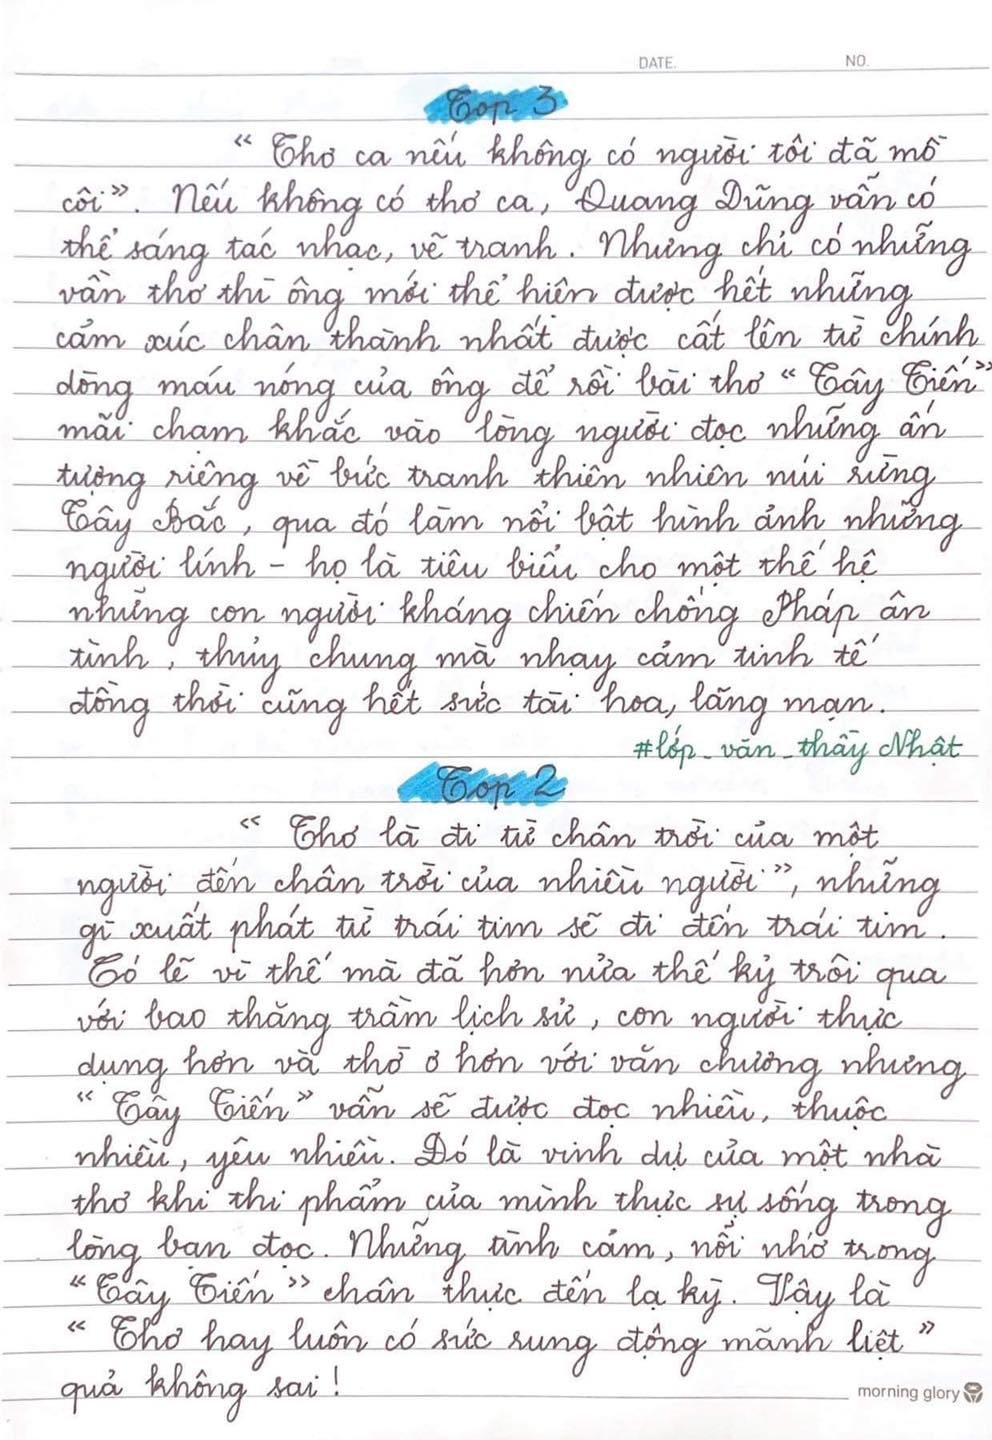 DATE. NO.
Top 3
“ Thơ ca nếu không có người tôi đã mồ
côi”. Nếu không có thơ ca, Quang Dũng vẫn có
thể sáng tác nhạc, vẽ tranh. Nhưng chỉ có những
vần thơ thì ông mới thể hiện được hết những
cảm xúc chân thành nhất được cất lên từ chính
dòng máu nóng của ông để rồi bài thơ “ Tây Tiến”
mãi chạm khắc vào lòng người đọc những ấn
tượng riêng về bức tranh thiên nhiên núi rừng
Tây Bắc, qua đó làm nổi bật hình ảnh những
người lính - họ là tiêu biểu cho một thế hệ
những con người kháng chiến chống Pháp ân
tình, thủy chung mà nhạy cảm tinh tế
đồng thời cũng hết sức tài hoa, lãng mạn.
#lớp_văn_thầy Nhật
Top 2
“ Thơ là đi từ chân trời của một
người đến chân trời của nhiều người”, những
gì xuất phát từ trái tim sẽ đi đến trái tim.
Có lẽ vì thế mà đã hơn nửa thế kỷ trôi qua
với bao thăng trầm lịch sử, con người thực
dụng hơn và thờ ơ hơn với văn chương nhưng
“ Tây Tiến” vẫn sẽ được đọc nhiều, thuộc
nhiều, yêu nhiều. Đó là vinh dự của một nhà
thơ khi thi phẩm của mình thực sự sống trong
lòng bạn đọc. Những tình cảm, nỗi nhớ trong
“ Tây Tiến ” chân thực đến lạ kỳ. Vậy là
“ Thơ hay luôn có sức rung động mãnh liệt ”
quả không sai !
morning glory